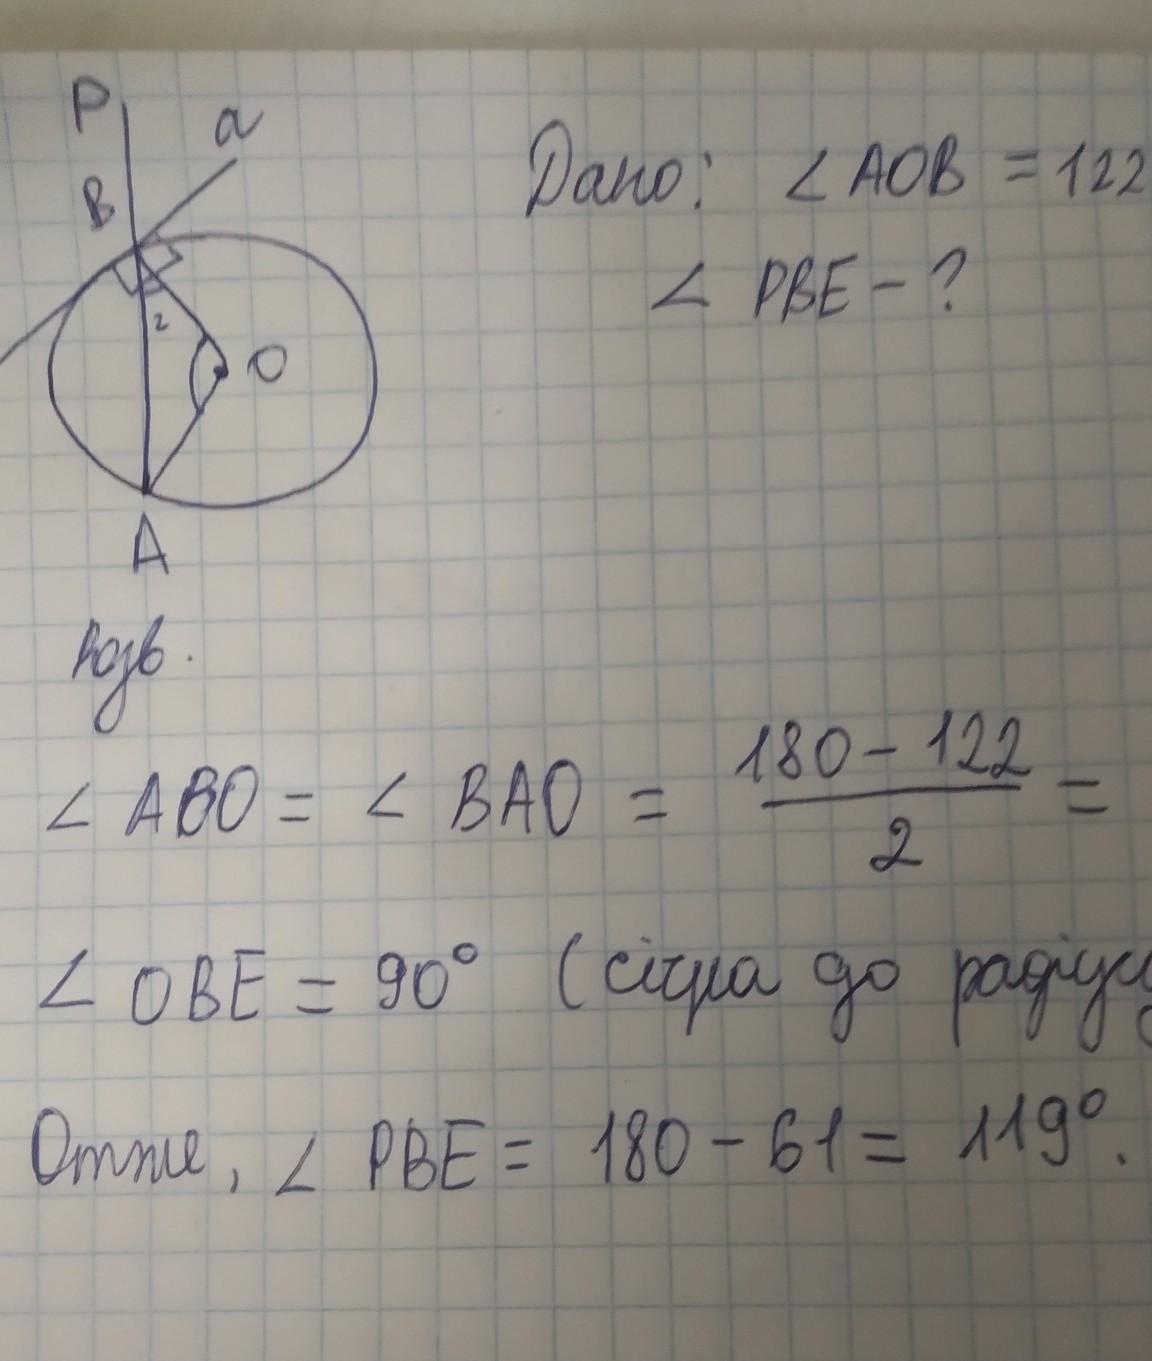 P
a
B
2
O
A
Дано: ∠ AOB = 122
∠ PBE - ?
Розв.
∠ ABO = ∠ BAO = \frac{180 - 122}{2} =
∠ OBE = 90° (січна до радіус
Отже, ∠ PBE = 180 - 61 = 119°.